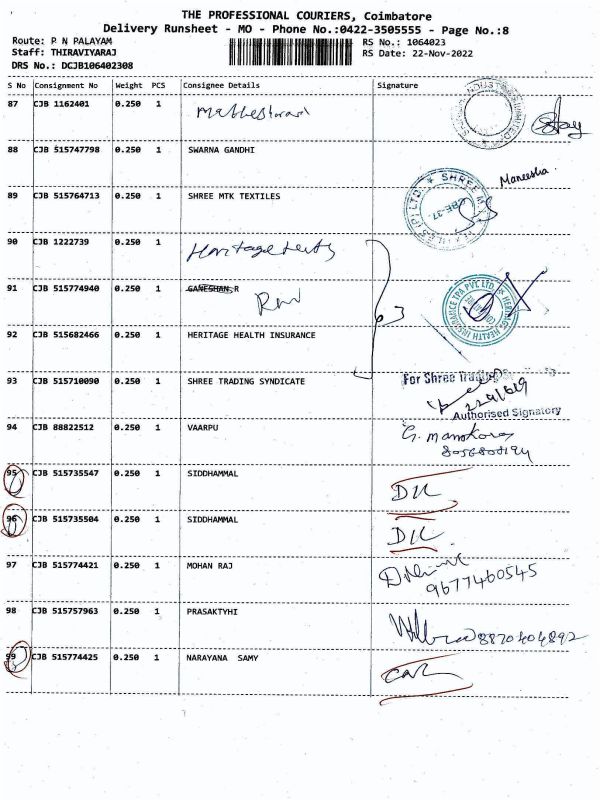 THE PROFESSIONAL COURIERS, Coimbatore
Delivery Runsheet - MO - Phone No.:0422-3505555 - Page No.:8
Route: P N PALAYAM RS No.: 1064023
Staff: THIRAVIYARAJ RS Date: 22-Nov-2022
DRS No.: DCJB106402308
S No Consignment No Weight PCS Consignee Details Signature
87 CJB 1162401 0.250 1
88 CJB 515747798 0.250 1 SWARNA GANDHI
Maneesha
89 CJB 515764713 0.250 1 SHREE MTK TEXTILES
90 CJB 1222739 0.250 1 Heritage
91 CJB 515774940 0.250 1 GANESHAN.R
HERITAGE HEALTH INSURANCE TPA PVT LTD
92 CJB 515682466 0.250 1 HERITAGE HEALTH INSURANCE
93 CJB 515710090 0.250 1 SHREE TRADING SYNDICATE For Shree
Authorised Signatory
94 CJB 88822512 0.250 1 VAARPU
95 CJB 515735547 0.250 1 SIDDHAMMAL
96 CJB 515735504 0.250 1 SIDDHAMMAL
97 CJB 515774421 0.250 1 MOHAN RAJ
9677460545
98 CJB 515757963 0.250 1 PRASAKTYHI
8870404892
99 CJB 515774425 0.250 1 NARAYANA SAMY